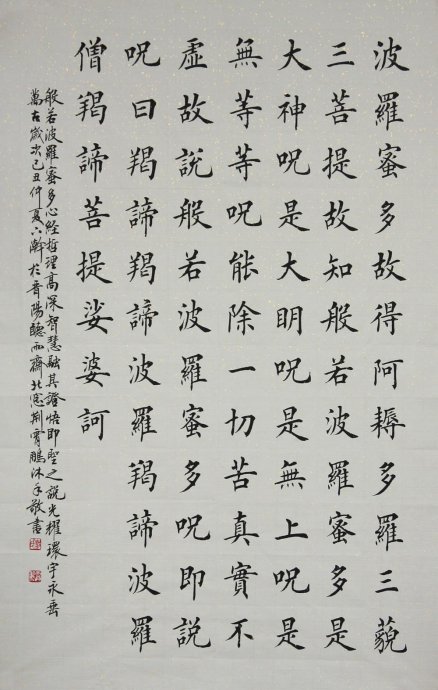 波羅蜜多故得阿耨多羅三藐
三菩提故知般若波羅蜜多是
大神呪是大明呪是無上呪是
無等等呪能除一切苦真實不
虛故說般若波羅蜜多呪即說
呪曰羯諦羯諦波羅羯諦波羅
僧羯諦菩提娑婆訶
般若波羅蜜多心經哲理高深智慧融其證悟即聖之說光耀環宇永垂
萬古歲次己丑仲夏六澣於晉陽聽雨齋北窓荊霄鵬沐手敬書